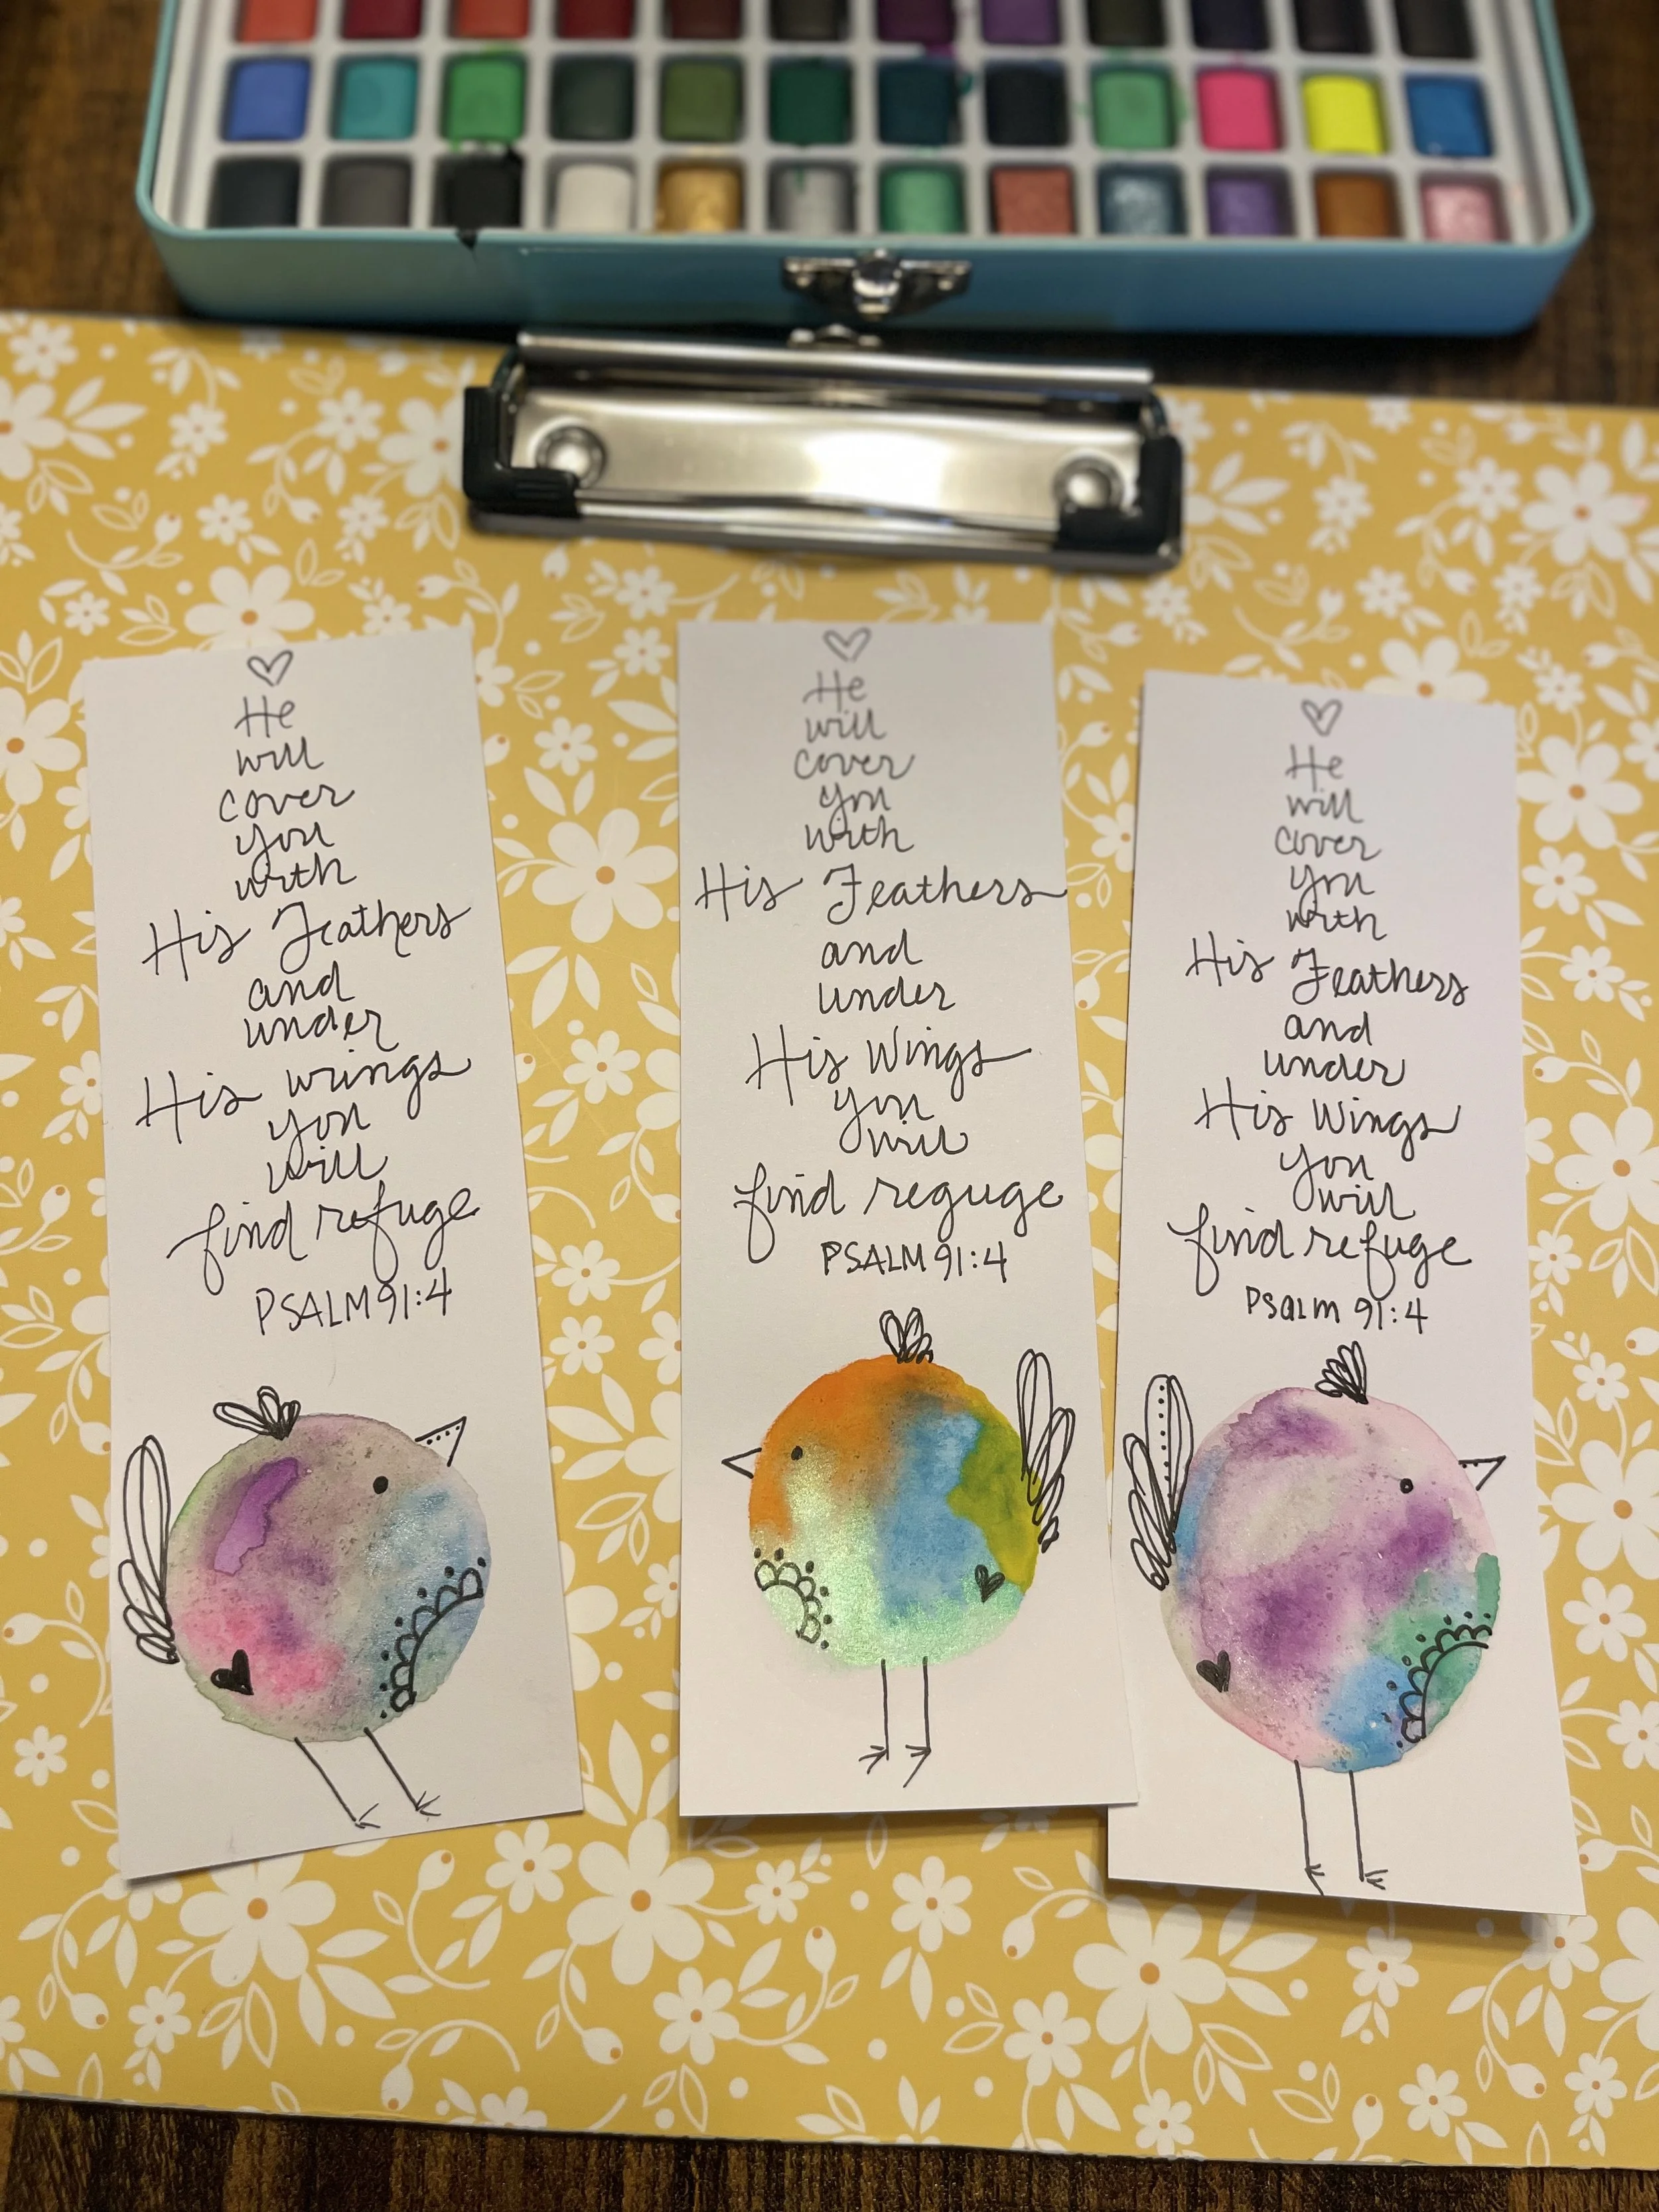 He
will
cover
you
with
His Feathers
and
under
His wings
you
will
find refuge
PSALM 91:4
He
will
cover
you
with
His Feathers
and
under
His Wings
you
will
find reguge
PSALM 91:4
He
will
cover
you
with
His Feathers
and
under
His Wings
you
will
find refuge
Psalm 91:4